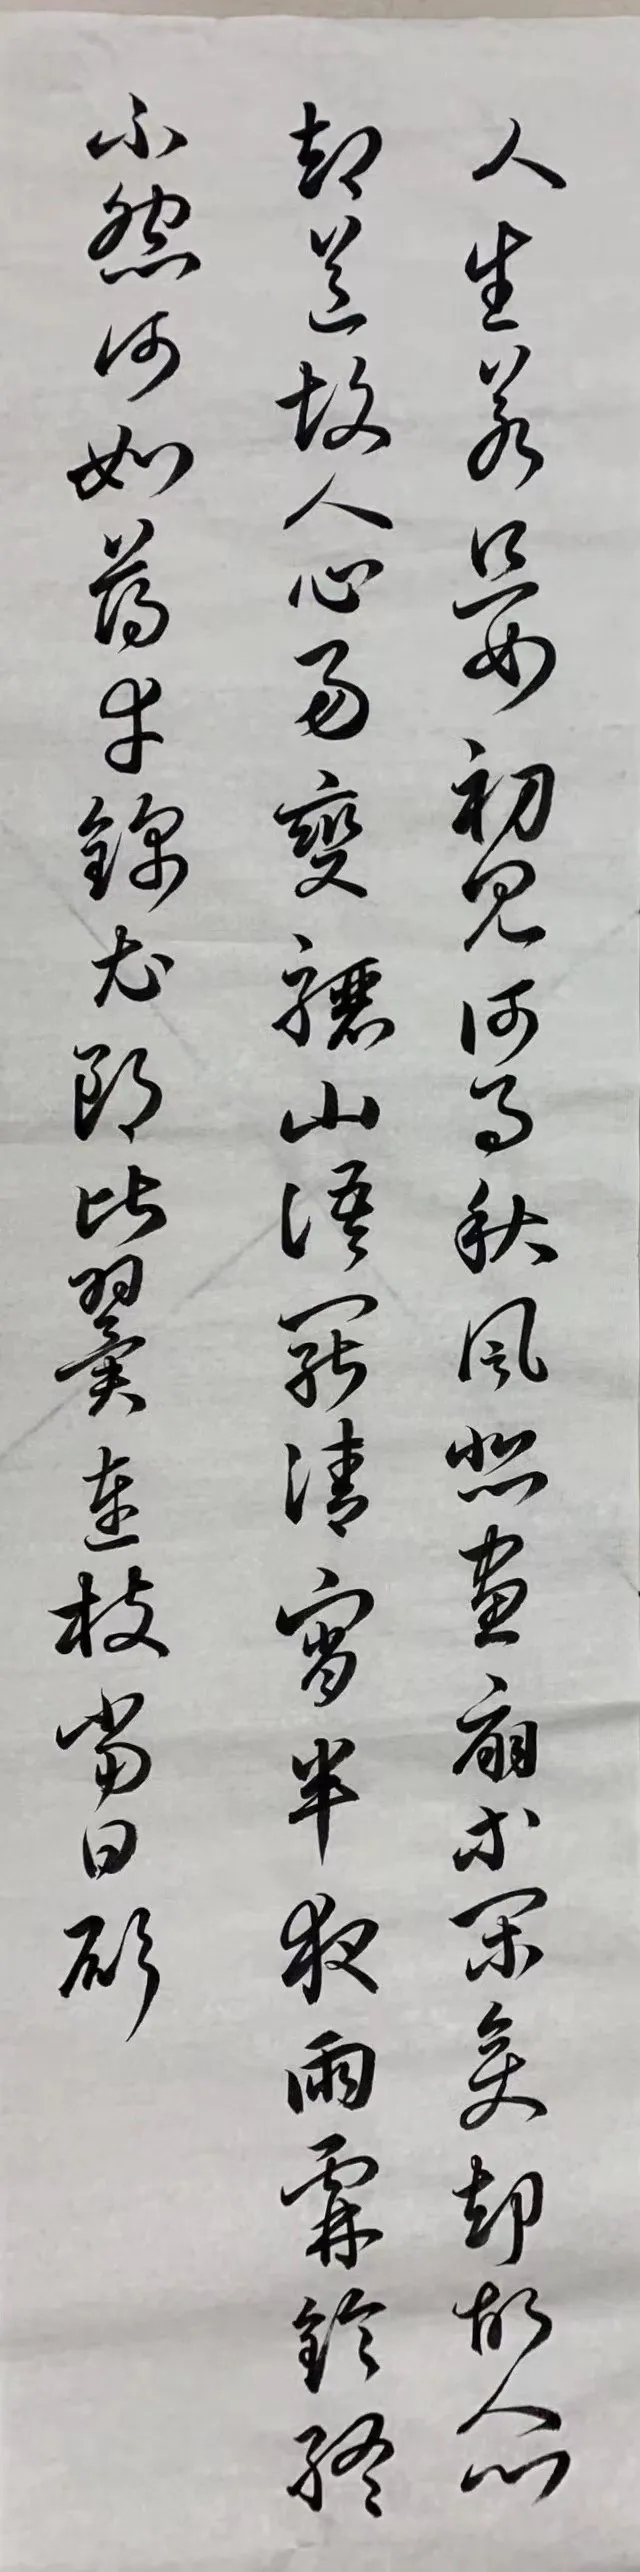 人生若只如初見何事秋風悲畫扇等閑變却故人心
却道故人心易變驪山語罷清宵半夜雨霖鈴終
不怨何如薄幸錦衣郎比翼連枝當日願